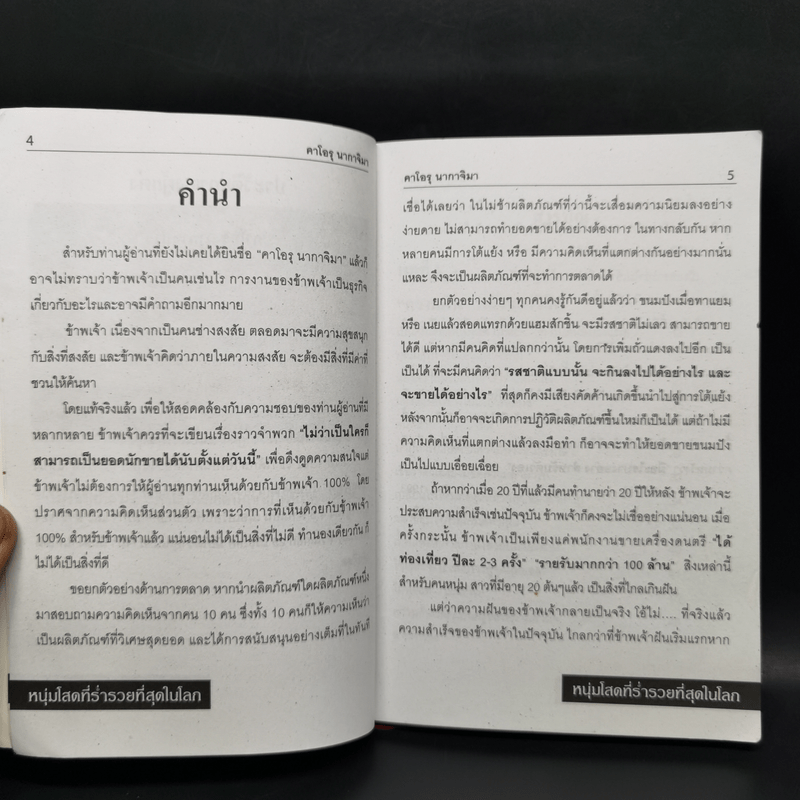 4
คาโอรุ นากาจิมา
คำนำ
สำหรับท่านผู้อ่านที่ยังไม่เคยได้ยินชื่อ "คาโอรุ นากาจิมา" แล้วก็
อาจไม่ทราบว่าข้าพเจ้าเป็นคนเช่นไร การงานของข้าพเจ้าเป็นธุรกิจ
เกี่ยวกับอะไรและอาจมีคำถามอีกมากมาย
ข้าพเจ้า เนื่องจากเป็นคนช่างสงสัย ตลอดมาจะมีความสุขสนุก
กับสิ่งที่สงสัย และข้าพเจ้าคิดว่าภายในความสงสัย จะต้องมีสิ่งที่มีค่าที่
ชวนให้ค้นหา
โดยแท้จริงแล้ว เพื่อให้สอดคล้องกับความชอบของท่านผู้อ่านที่มี
หลากหลาย ข้าพเจ้าควรที่จะเขียนเรื่องราวจำพวก "ไม่ว่าเป็นใครก็
สามารถเป็นยอดนักขายได้นับตั้งแต่วันนี้" เพื่อดึงดูดความสนใจแต่
ข้าพเจ้าไม่ต้องการให้ผู้อ่านทุกท่านเห็นด้วยกับข้าพเจ้า 100% โดย
ปราศจากความคิดเห็นส่วนตัว เพราะว่าการที่เห็นด้วยกับข้าพเจ้า
100% สำหรับข้าพเจ้าแล้ว แน่นอนไม่ได้เป็นสิ่งที่ไม่ดี ทำนองเดียวกัน ก็
ไม่ได้เป็นสิ่งที่ดี
ขอยกตัวอย่างด้านการตลาด หากนำผลิตภัณฑ์ใดผลิตภัณฑ์หนึ่ง
มาสอบถามความคิดเห็นจากคน 10 คน ซึ่งทั้ง 10 คนก็ให้ความเห็นว่า
เป็นผลิตภัณฑ์ที่วิเศษสุดยอด และได้การสนับสนุนอย่างเต็มที่ในทันที
หนุ่มโสดที่ร่ำรวยที่สุดในโลก
คาโอรุ นากาจิมา
5
เชื่อได้เลยว่า ในไม่ช้าผลิตภัณฑ์ที่ว่านี้จะเสื่อมความนิยมลงอย่าง
ง่ายดาย ไม่สามารถทำยอดขายได้อย่างต้องการ ในทางกลับกัน หาก
หลายคนมีการโต้แย้ง หรือ มีความคิดเห็นที่แตกต่างกันอย่างมากนั่น
แหละ จึงจะเป็นผลิตภัณฑ์ที่จะทำการตลาดได้
ยกตัวอย่างง่ายๆ ทุกคนคงรู้กันดีอยู่แล้วว่า ขนมปังเมื่อทาแยม
หรือ เนยแล้วสอดแทรกด้วยแฮมสักชิ้น จะมีรสชาติไม่เลว สามารถขาย
ได้ดี แต่หากมีคนคิดที่แปลกกว่านั้น โดยการเพิ่มถั่วแดงลงไปอีก เป็น
เป็นได้ ที่จะมีคนคิดว่า "รสชาติแบบนั้น จะกินลงไปได้อย่างไร และ
จะขายได้อย่างไร" ที่สุดก็คงมีเสียงคัดค้านเกิดขึ้นนำไปสู่การโต้แย้ง
หลังจากนั้นก็อาจจะเกิดการปฏิวัติผลิตภัณฑ์ขึ้นใหม่ก็เป็นได้ แต่ถ้าไม่มี
ความคิดเห็นที่แตกต่างแล้วลงมือทำ ก็อาจจะทำให้ยอดขายขนมปัง
เป็นไปแบบเอื่อยเฉื่อย
ถ้าหากว่าเมื่อ 20 ปีที่แล้วมีคนทำนายว่า 20 ปีให้หลัง ข้าพเจ้าจะ
ประสบความสำเร็จเช่นปัจจุบัน ข้าพเจ้าก็คงจะไม่เชื่ออย่างแน่นอน เมื่อ
ครั้งกระนั้น ข้าพเจ้าเป็นเพียงแค่พนักงานขายเครื่องดนตรี "ได้
ท่องเที่ยว ปีละ 2-3 ครั้ง" "รายรับมากกว่า 100 ล้าน" สิ่งเหล่านี้
สำหรับคนหนุ่ม สาวที่มีอายุ 20 ต้นๆแล้ว เป็นสิ่งที่ไกลเกินฝัน
แต่ว่าความฝันของข้าพเจ้ากลายเป็นจริง โอ้ไม่.... ที่จริงแล้ว
ความสำเร็จของข้าพเจ้าในปัจจุบัน ไกลกว่าที่ข้าพเจ้าฝันเริ่มแรกหาก
หนุ่มโสดที่ร่ำรวยที่สุดในโลก